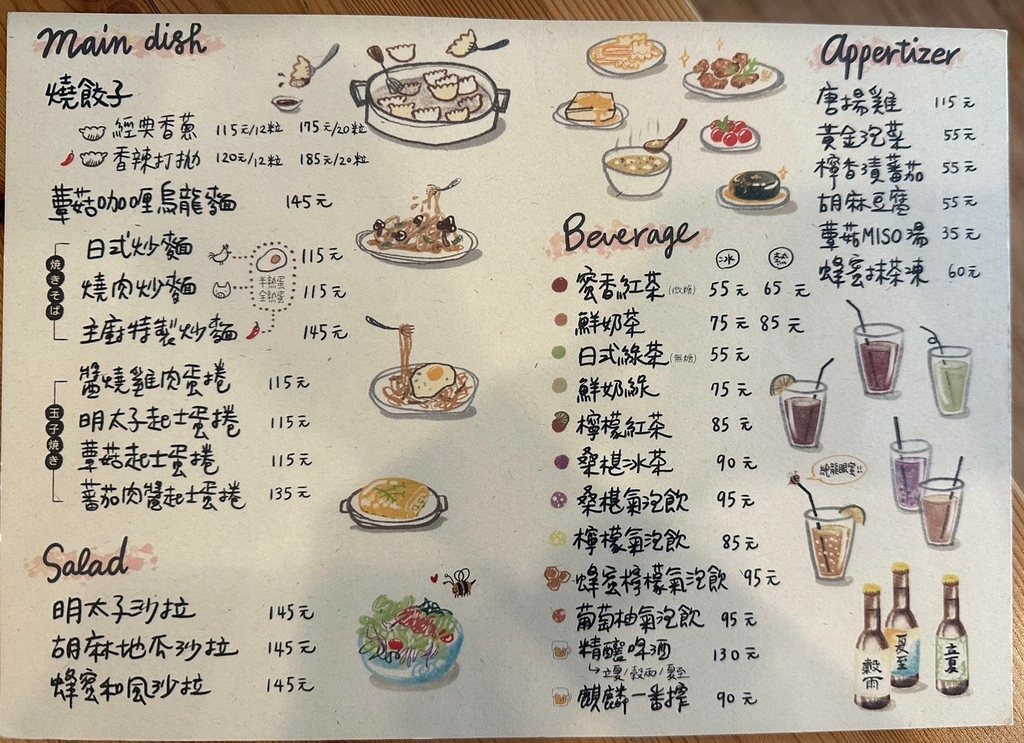 main dish
燒餃子
經典香蔥 115元/12粒 175元/20粒
香辣打拋 120元/12粒 185元/20粒
蕈菇咖喱烏龍麵 145元
焼きそば
日式炒麵 115元
燒肉炒麵 115元
主廚特製炒麵 145元
半熟蛋
全熟蛋
玉子焼き
醬燒雞肉蛋捲 115元
明太子起士蛋捲 115元
蕈菇起士蛋捲 115元
蕃茄肉醬起士蛋捲 135元
Salad
明太子沙拉 145元
胡麻地瓜沙拉 145元
蜂蜜和風沙拉 145元
Appertizer
唐揚雞 115元
黃金泡菜 55元
檸香漬蕃茄 55元
胡麻豆腐 55元
蕈菇MISO湯 35元
蜂蜜抹茶凍 60元
Beverage
冰 熱
蜜香紅茶(微糖) 55元 65元
鮮奶茶 75元 85元
日式綠茶(無糖) 55元
鮮奶綠 75元
檸檬紅茶 85元
桑椹冰茶 90元
桑椹氣泡飲 95元
檸檬氣泡飲 85元
蜂蜜檸檬氣泡飲 95元
葡萄柚氣泡飲 95元
精釀啤酒 130元
立夏/穀雨/夏至
麒麟一番搾 90元
純龍眼蜜!!
穀雨
夏至
立夏